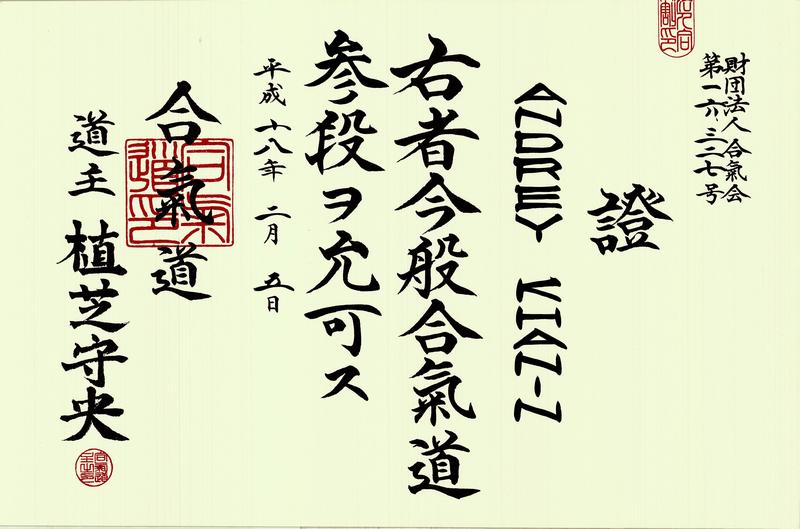 財団法人 合氣会
第一六、三二七号
證
ANDREY KHANIN
右者今般合氣道
参段ヲ允可ス
平成十八年 二月 五日
合氣道
道主 植芝守央